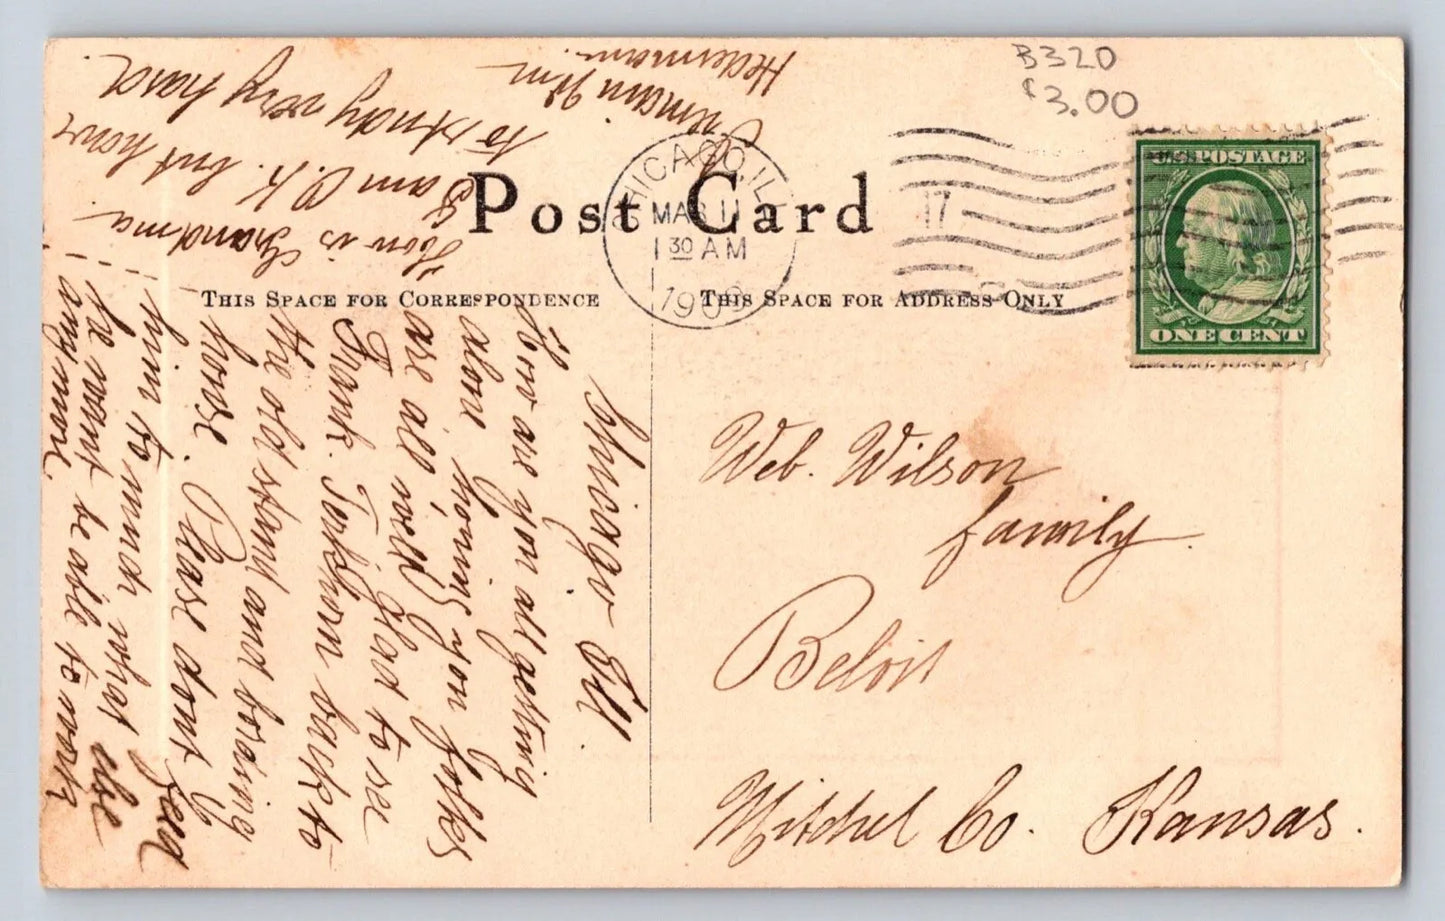 B320
$3.00
U.S. POSTAGE
ONE CENT
CHICAGO, ILL
MAR 11
1 30 AM
1909
17
Post Card
THIS SPACE FOR CORRESPONDENCE
THIS SPACE FOR ADDRESS ONLY
Web. Wilson
family.
Beloit
Mitchel Co. Kansas.
Chicago Ill.
How are you all getting
alone hoping you folks
are all well, glad to see
Frank Tonkhorn back to
the old stand and boxing
horse. Please dont feed
him to much what else
he wont be able to work
anymore
How is Grandma.
I am O.K. but have
to study very hard.
remain Wm
Hedermann.